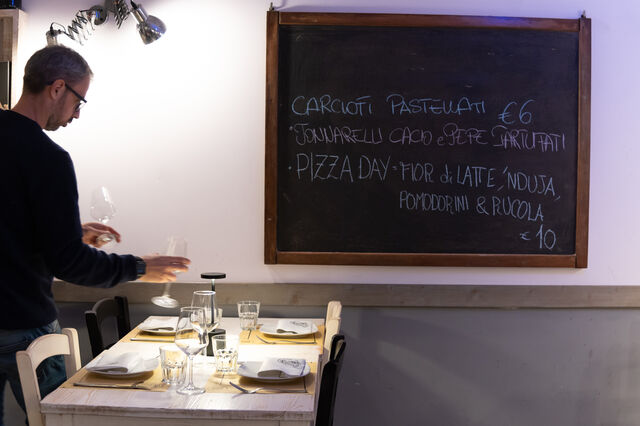 CARCIOFI PASTELLATI €6
• TONNARELLI CACIO e PEPE TARTUFATI
• PIZZA DAY = FIOR di LATTE, 'NDUJA,
POMODORINI & RUCOLA
€10